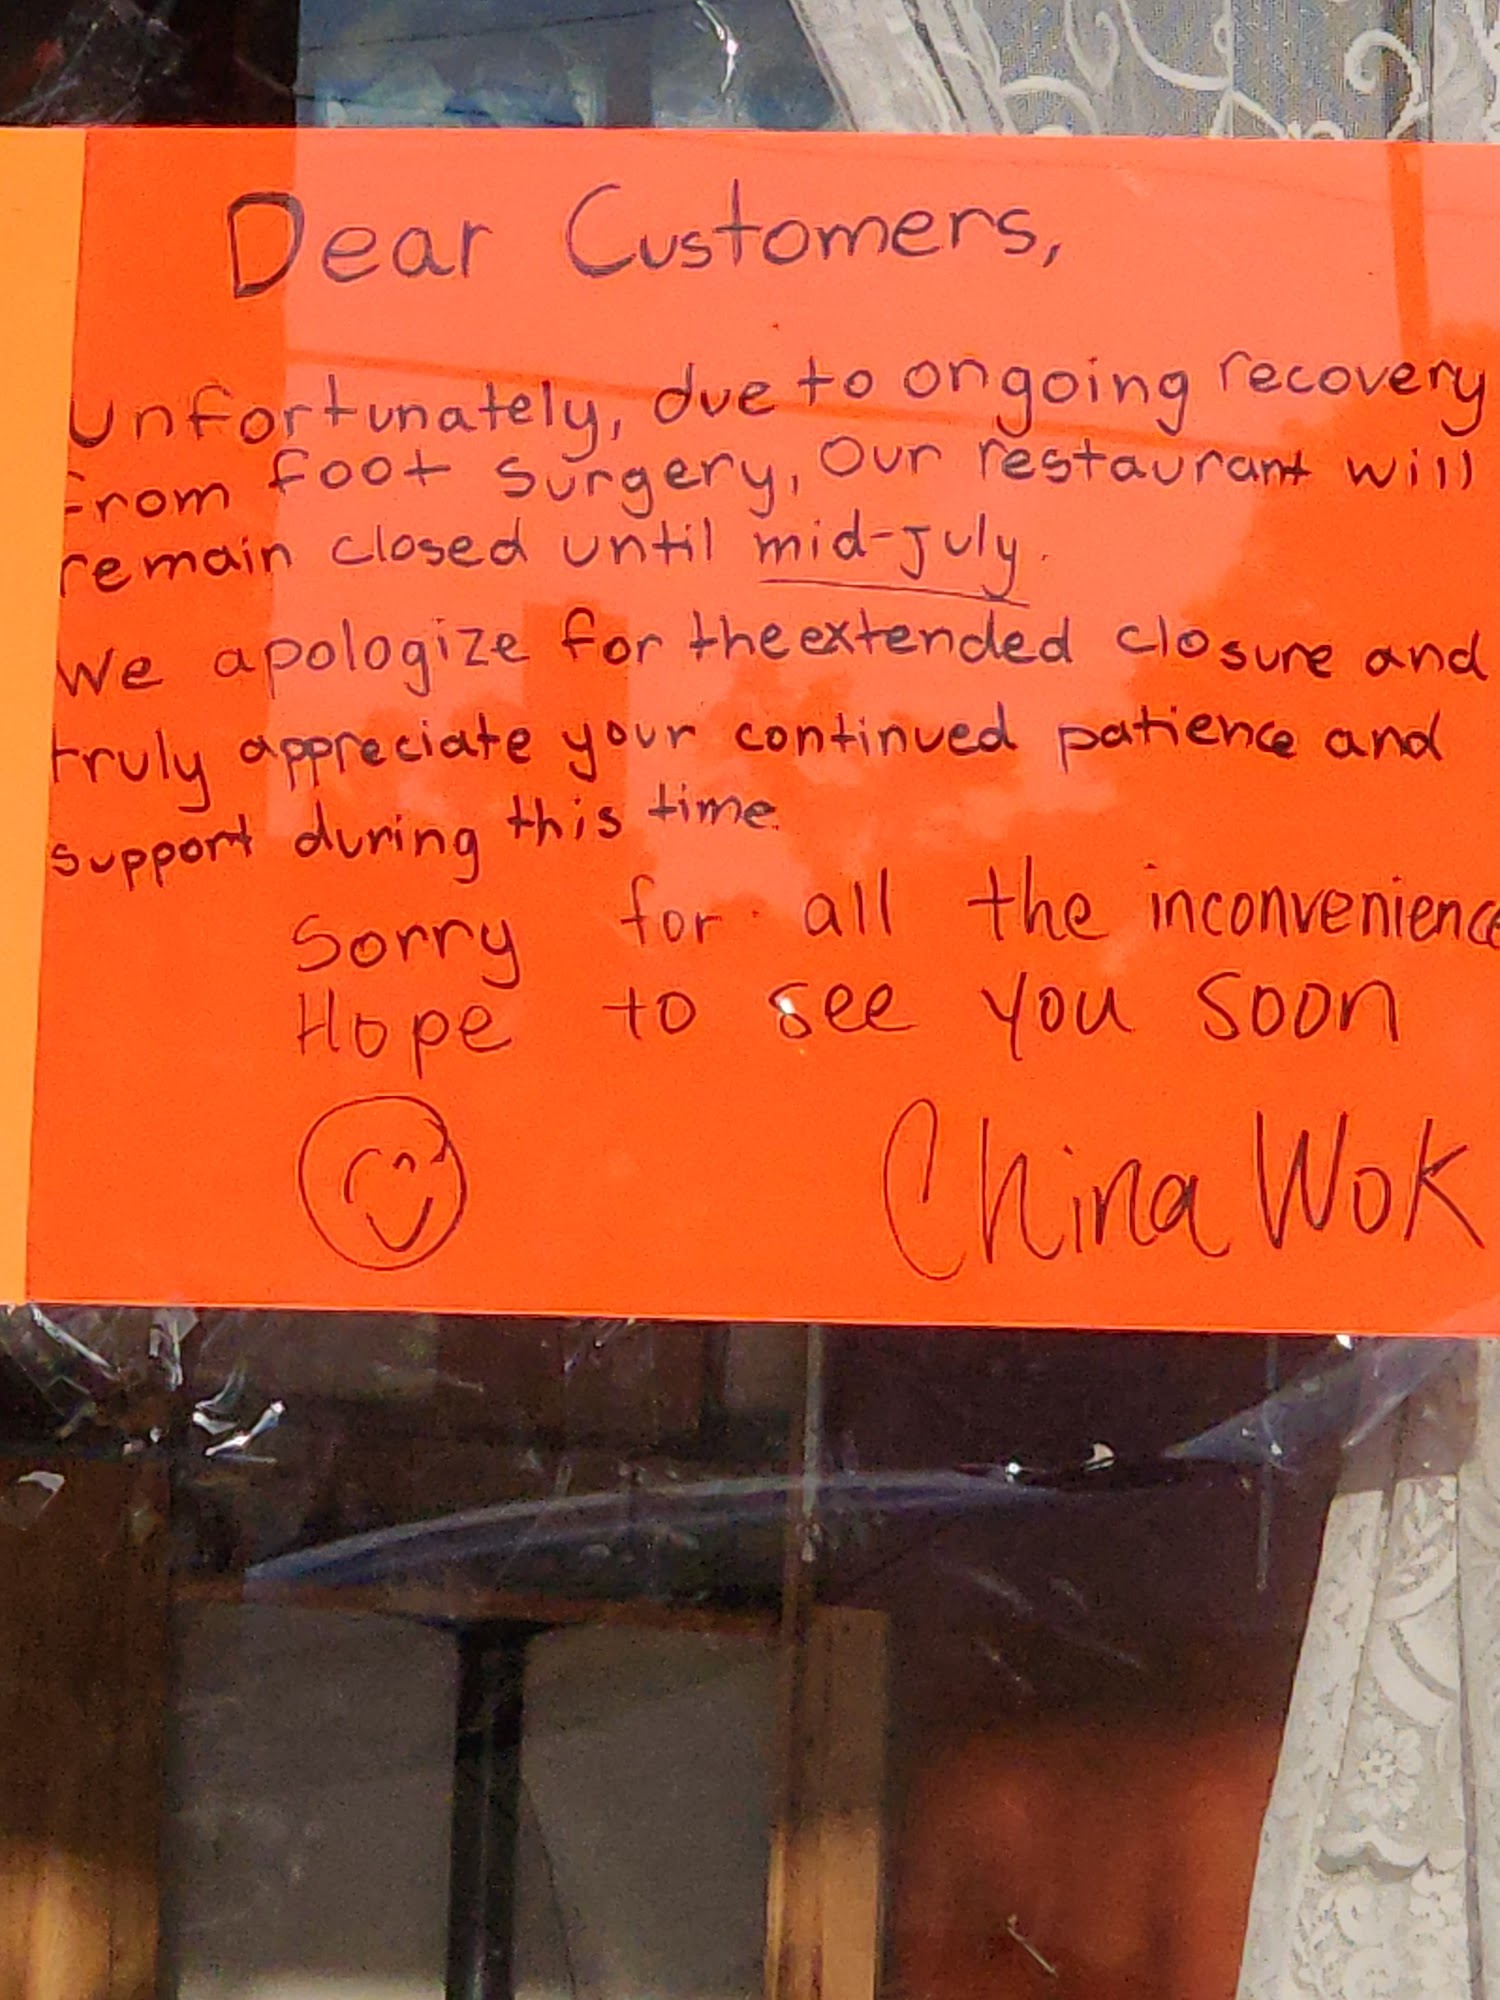 Dear Customers,
Unfortunately, due to ongoing recovery
from foot surgery, our restaurant will
remain closed until mid-July.
We apologize for the extended closure and
truly appreciate your continued patience and
support during this time.
Sorry for all the inconvenience
Hope to see you soon
China Wok